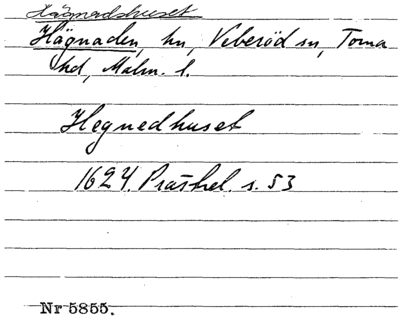 Hägnadshuset
Hägnaden, hn, Veberöd sn, Torna
hd, Malm. l.
Hegnedhuset
1624. Prästrel. s. 53
Nr 5855.